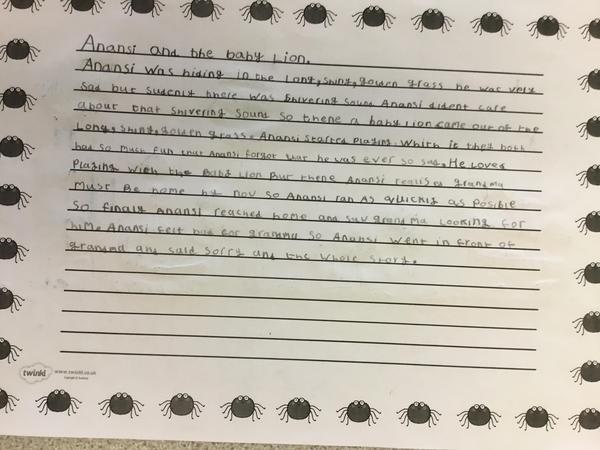 Anansi and the baby Lion.
Anansi Was hiding in the Long, shiny, golden grass he was very
sad but sudenly there was shivering sound Anansi dident care
about that shivering sound so thene a baby Lion came out of the
Long, shiny, golden grass. Anansi started playing. Which it they both
had so much fun that Anansi forgot war he was ever so sad. He Loved
Playing With the Baby Lion Bur thene Anansi realised grandma
Must Be home by nov so Anansi ran As quickly as posible
So finaly Anansi reached home and saw grandma Looking for
hime Anansi felt bad for gramma so Anansi went in front of
grandma and said sorry and the whole story.
twinkl www.twinkl.co.uk